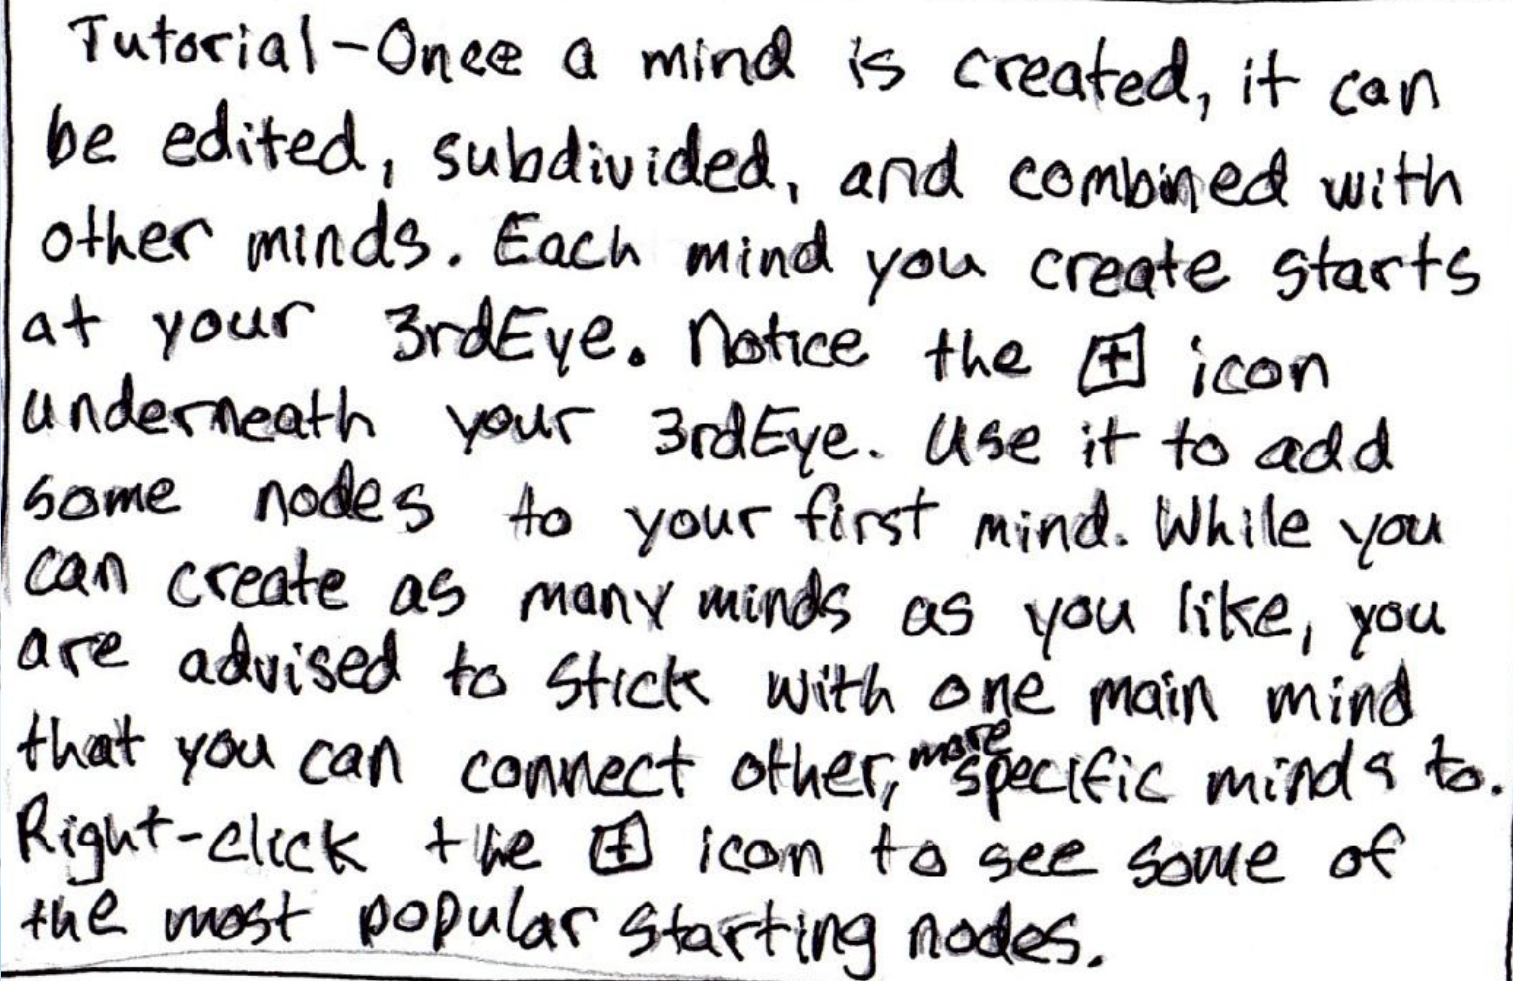 Tutorial-Once a mind is created, it can
be edited, subdivided, and combined with
other minds. Each mind you create starts
at your 3rdEye. Notice the [+] icon
underneath your 3rdEye. Use it to add
some nodes to your first mind. While you
can create as many minds as you like, you
are advised to stick with one main mind
that you can connect other, more specific minds to.
Right-click the [+] icon to see some of
the most popular starting nodes.